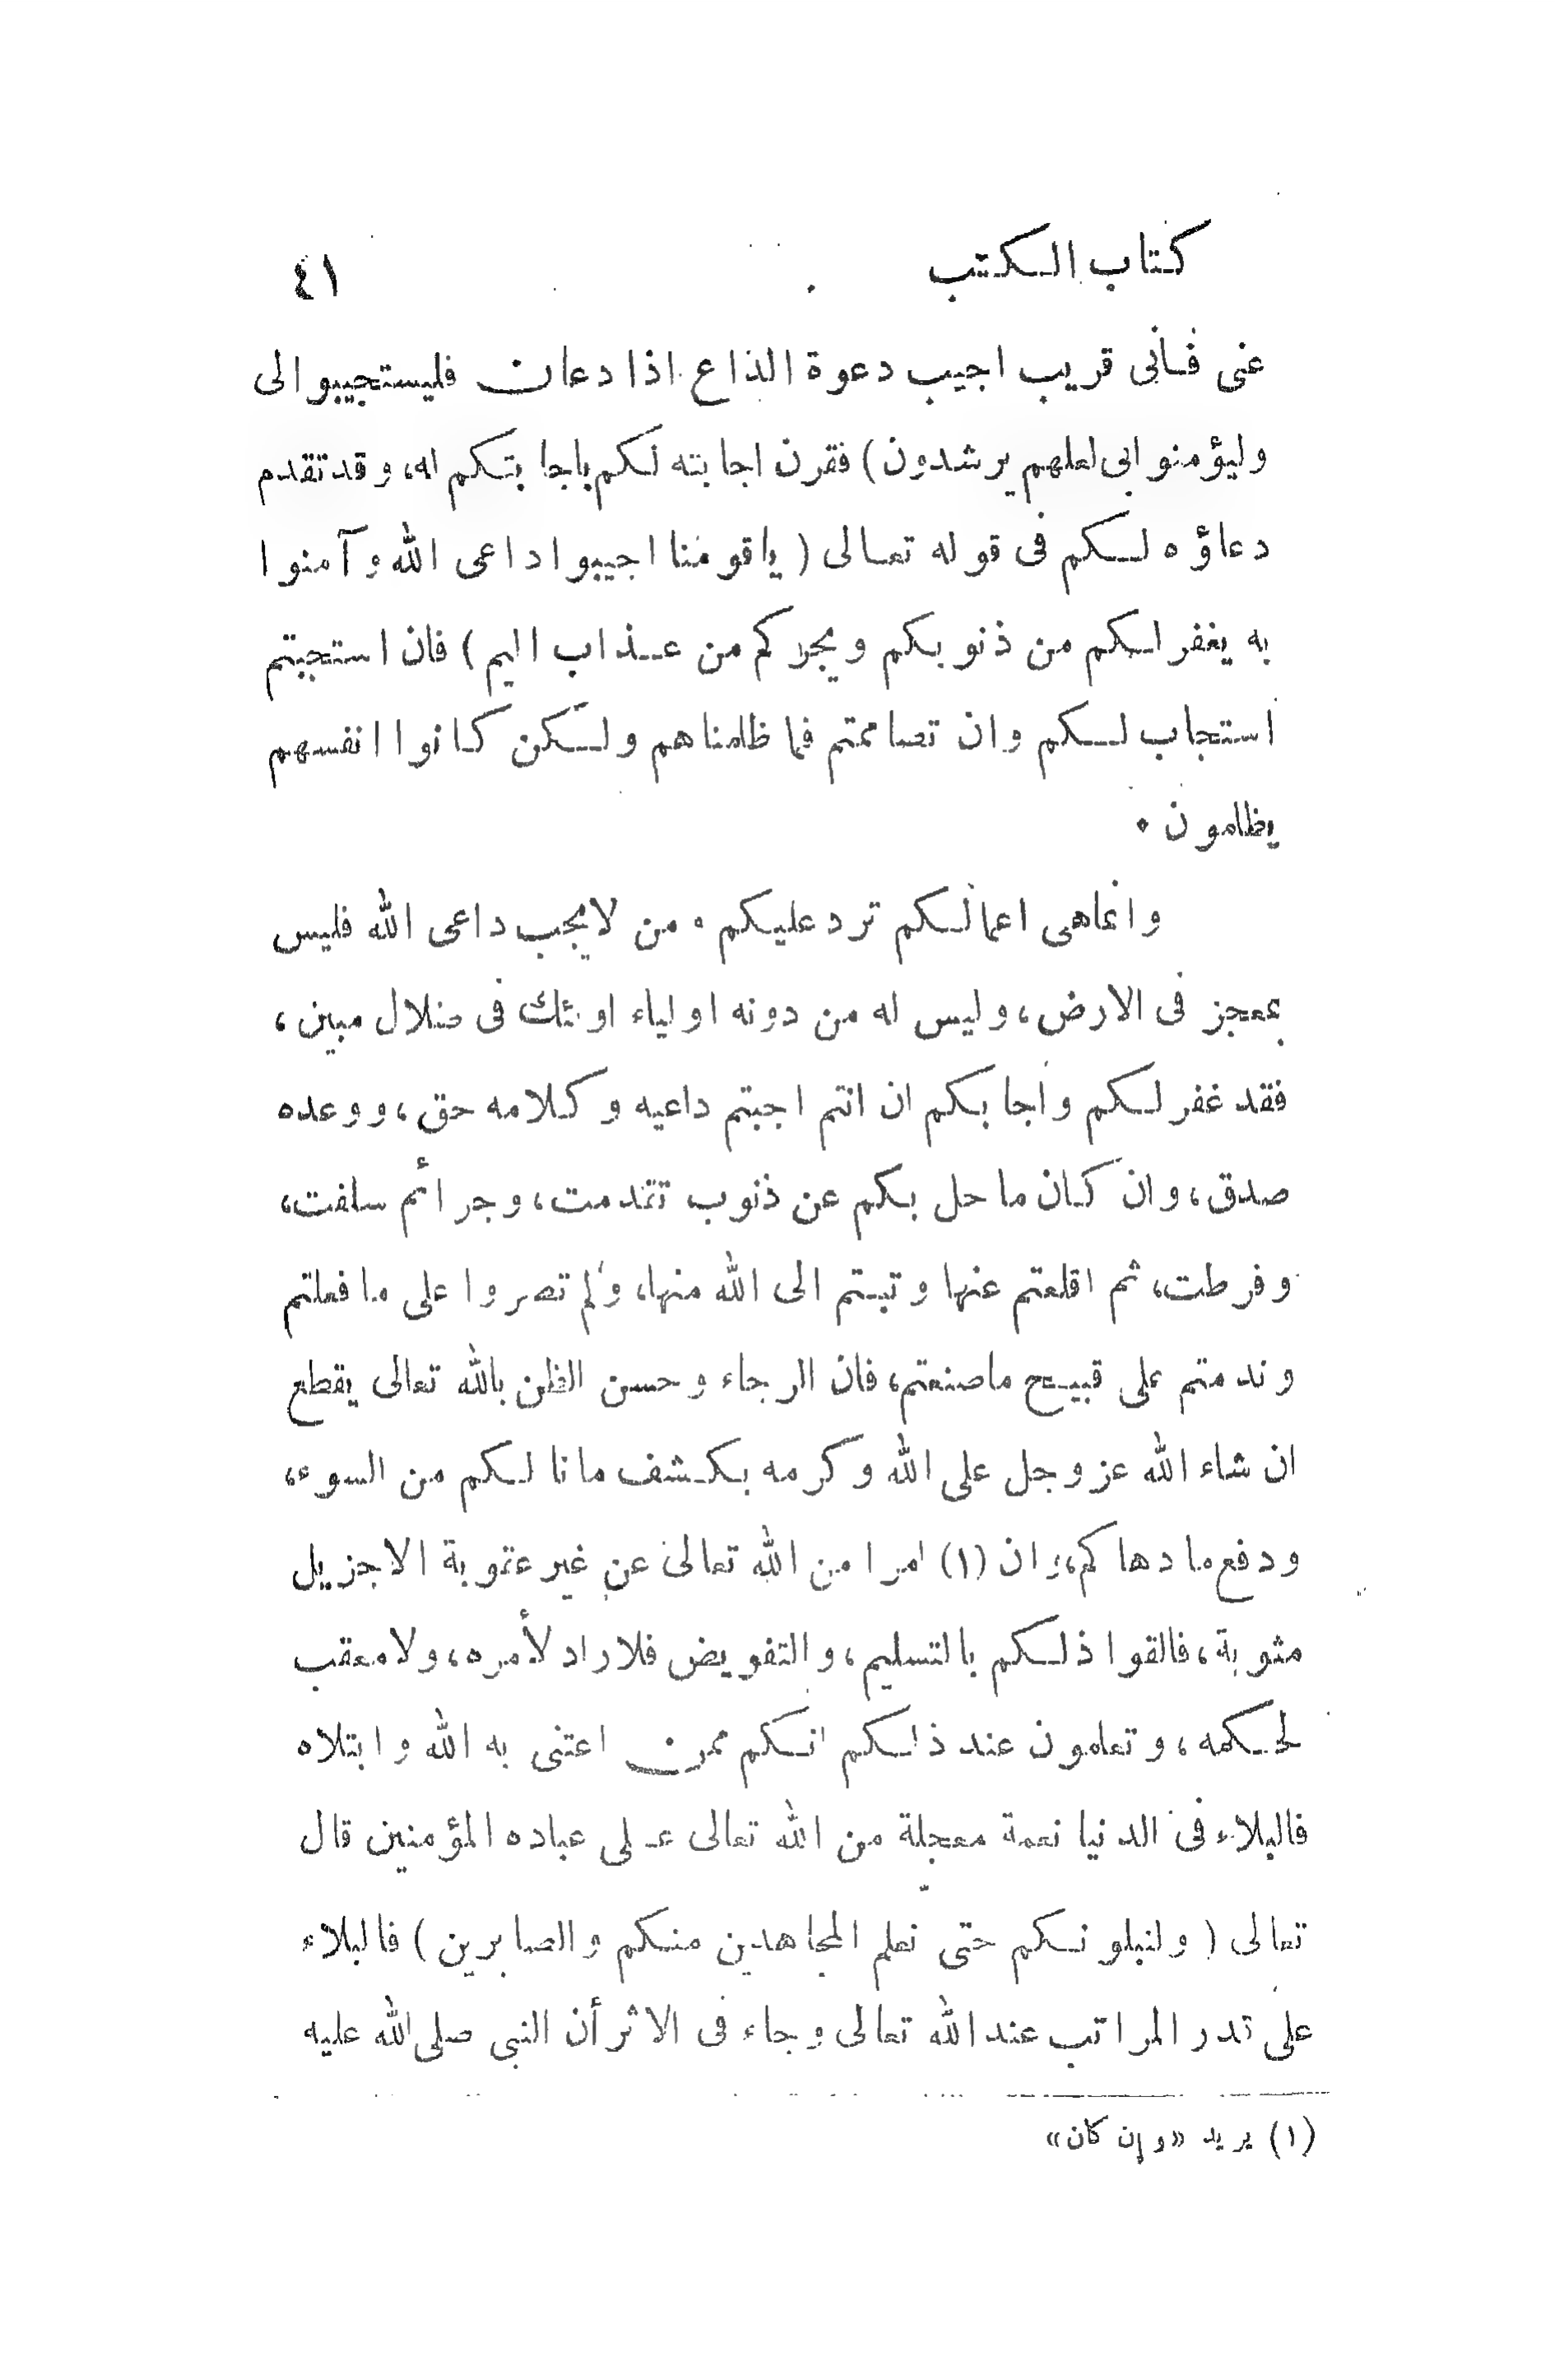 كتاب الكتب ٤١
عنى فأنى قريب اجيب دعوة الداع اذا دعان فليستجيبوا لى
وليؤمنوا بى لعلهم يرشدون) فقرن اجابته لكم باجابتكم له، وقد تقدم
دعاؤه لكم فى قوله تعالى (ياقومنا اجيبوا داعى الله وآمنوا
به يغفر لكم من ذنوبكم ويجركم من عذاب اليم) فان استجبتم
استجاب لكم وان تصاممتم فما ظلمناهم ولكن كانوا انفسهم
يظلمون .
وانماهى اعمالكم ترد عليكم . من لايجب داعى الله فليس
بمعجز فى الارض، وليس له من دونه اولياء اولئك فى ضلال مبين،
فقد غفر لكم واجابكم ان انتم اجبتم داعيه وكلامه حق، ووعده
صدق، وان كان ما حل بكم عن ذنوب تقدمت، وجرائم سلفت،
وفرطت، ثم اقلعتم عنها وتبتم الى الله منها، ولم تصروا على ما فعلتم
وندمتم على قبيح ماصنعتم، فان الرجاء وحسن الظن بالله تعالى يقطع
ان شاء الله عز وجل على الله وكرمه بكشف ما نالكم من السوء،
ودفع ما دهاكم، وان (١) امرا من الله تعالى عن غير عقوبة الاجزيل
مثوبة، فالقوا ذلكم بالتسليم، والتفويض فلاراد لأمره، ولا معقب
لحكمه، وتعلمون عند ذلكم انكم ممن اعتنى به الله وابتلاه
فالبلاء فى الدنيا نعمة معجلة من الله تعالى على عباده المؤمنين قال
تعالى (ولنبلونكم حتى نعلم المجاهدين منكم والصابرين) فالبلاء
على قدر المراتب عند الله تعالى وجاء فى الاثر أن النبى صلى الله عليه
(١) يريد «وإن كان»